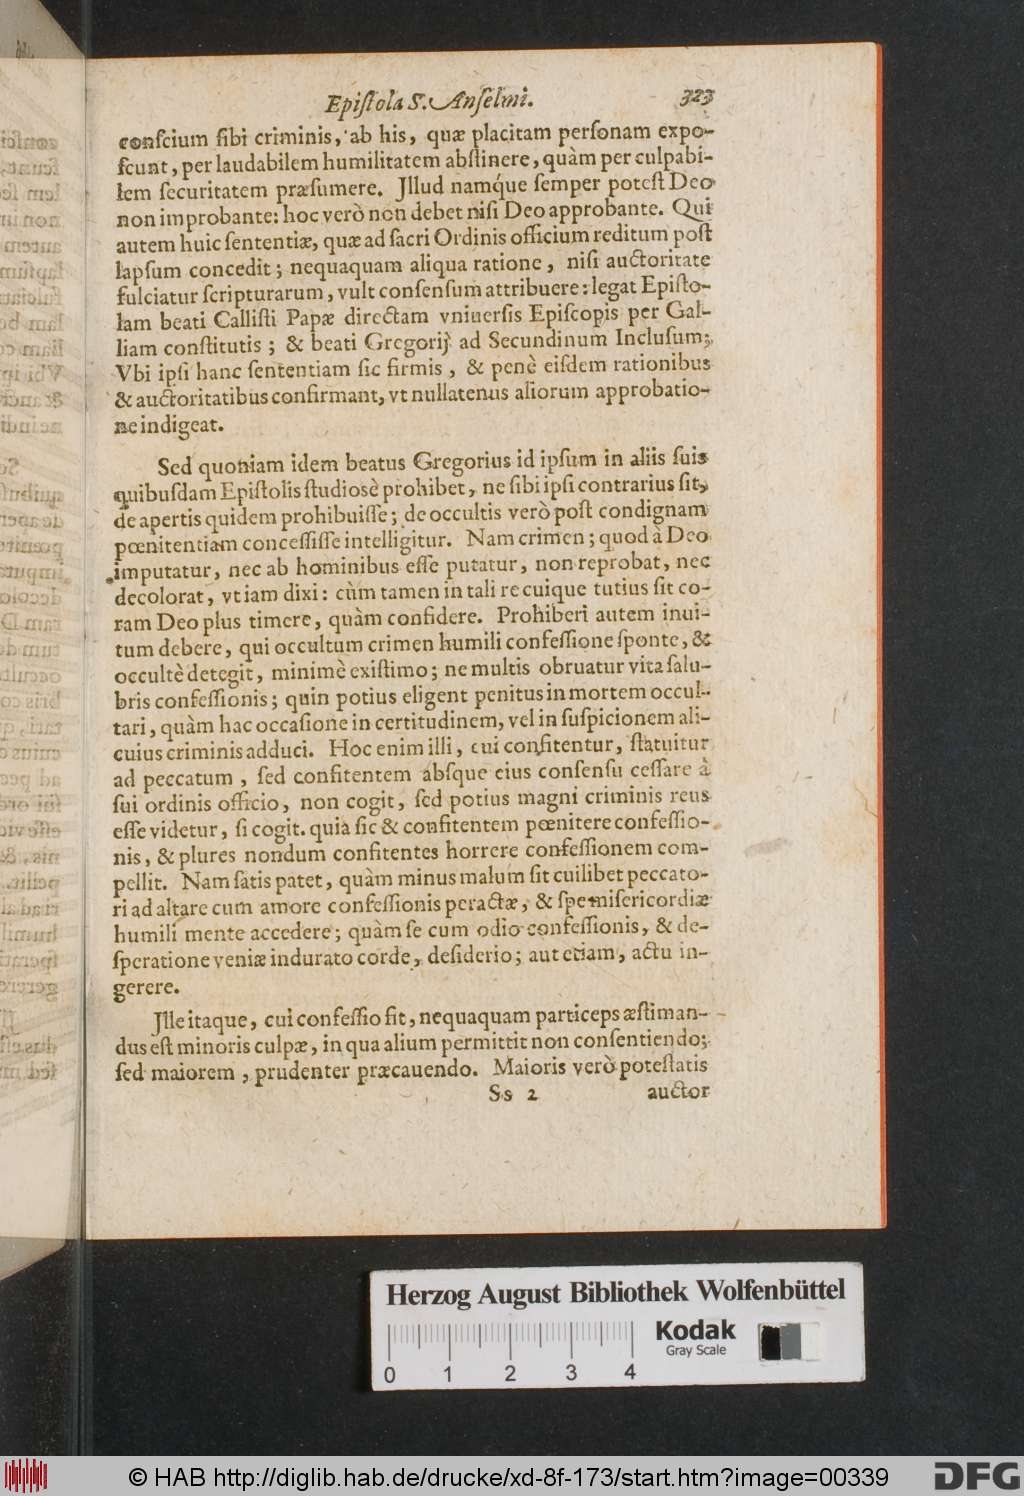 Epiſtola S. Anſelmi. 323
conſcium ſibi criminis, ab his, quæ placitam perſonam expo-
ſcunt, per laudabilem humilitatem abſtinere, quàm per culpabi-
lem ſecuritatem præſumere. Jllud namq́ue ſemper poteſt Deo
non improbante: hoc verò non debet niſi Deo approbante. Qui
autem huic ſententiæ, quæ ad ſacri Ordinis officium reditum poſt
lapſum concedit; nequaquam aliqua ratione, niſi auctoritate
fulciatur ſcripturarum, vult conſenſum attribuere: legat Epiſto-
lam beati Calliſti Papæ directam vniuerſis Epiſcopis per Gal-
liam conſtitutis; & beati Gregorij ad Secundinum Incluſum;
Vbi ipſi hanc ſententiam ſic firmis, & penè eiſdem rationibus
& auctoritatibus confirmant, vt nullatenus aliorum approbatio-
ne indigeat.
Sed quoniam idem beatus Gregorius id ipſum in aliis ſuis
quibuſdam Epiſtolis ſtudiosè prohibet, ne ſibi ipſi contrarius ſit,
de apertis quidem prohibuiſſe; de occultis verò poſt condignam
pœnitentiam conceſſiſſe intelligitur. Nam crimen; quod à Deo
imputatur, nec ab hominibus eſſe putatur, non reprobat, nec
decolorat, vt iam dixi: cùm tamen in tali re cuique tutius ſit co-
ram Deo plus timere, quàm confidere. Prohiberi autem inui-
tum debere, qui occultum crimen humili confeſſione ſponte, &
occultè detegit, minimè exiſtimo; ne multis obruatur vita ſalu-
bris confeſſionis; quin potius eligent penitus in mortem occul-
tari, quàm hac occaſione in certitudinem, vel in ſuſpicionem ali-
cuius criminis adduci. Hoc enim illi, cui confitentur, ſtatuitur
ad peccatum, ſed confitentem abſque eius conſenſu ceſſare à
ſui ordinis officio, non cogit, ſed potius magni criminis reus
eſſe videtur, ſi cogit. quia ſic & confitentem pœnitere confeſſio-
nis, & plures nondum confitentes horrere confeſſionem com-
pellit. Nam ſatis patet, quàm minus malum ſit cuilibet peccato-
ri ad altare cum amore confeſſionis peractæ, & ſpe miſericordiæ
humili mente accedere; quàm ſe cum odio confeſſionis, & de-
ſperatione veniæ indurato corde, deſiderio; aut etiam, actu in-
gerere.
Jlle itaque, cui confeſſio fit, nequaquam particeps æſtiman-
dus eſt minoris culpæ, in qua alium permittit non conſentiendo;
ſed maiorem, prudenter præcauendo. Maioris verò poteſtatis
Ss 2 auctor
Herzog August Bibliothek Wolfenbüttel
Kodak
Gray Scale
0 1 2 3 4
© HAB http://diglib.hab.de/drucke/xd-8f-173/start.htm?image=00339 DFG